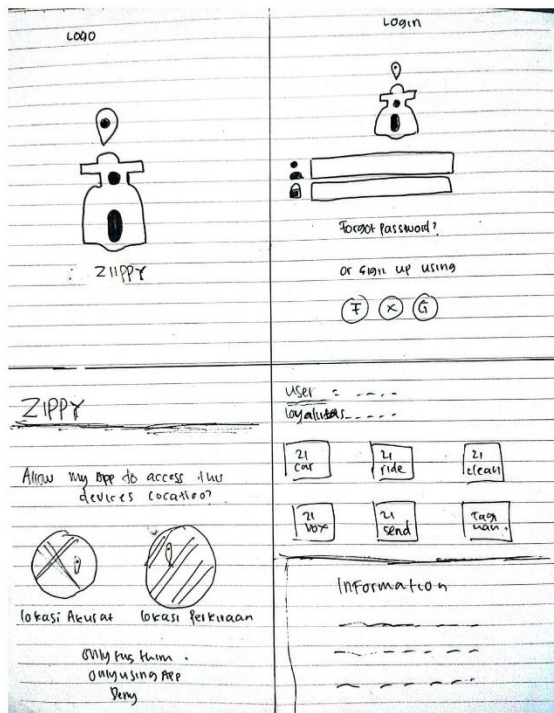 LOGO
ZIIPPY
Login
Forgot password?
or sign up using
F X G
ZIPPY
Allow my App to access this
devices location?
lokasi Akurat lokasi Perkiraan
only using App
Deny
user =
loyalitas
21 car
21 ride
21 clean
21 box
21 send
Tagihan
Information